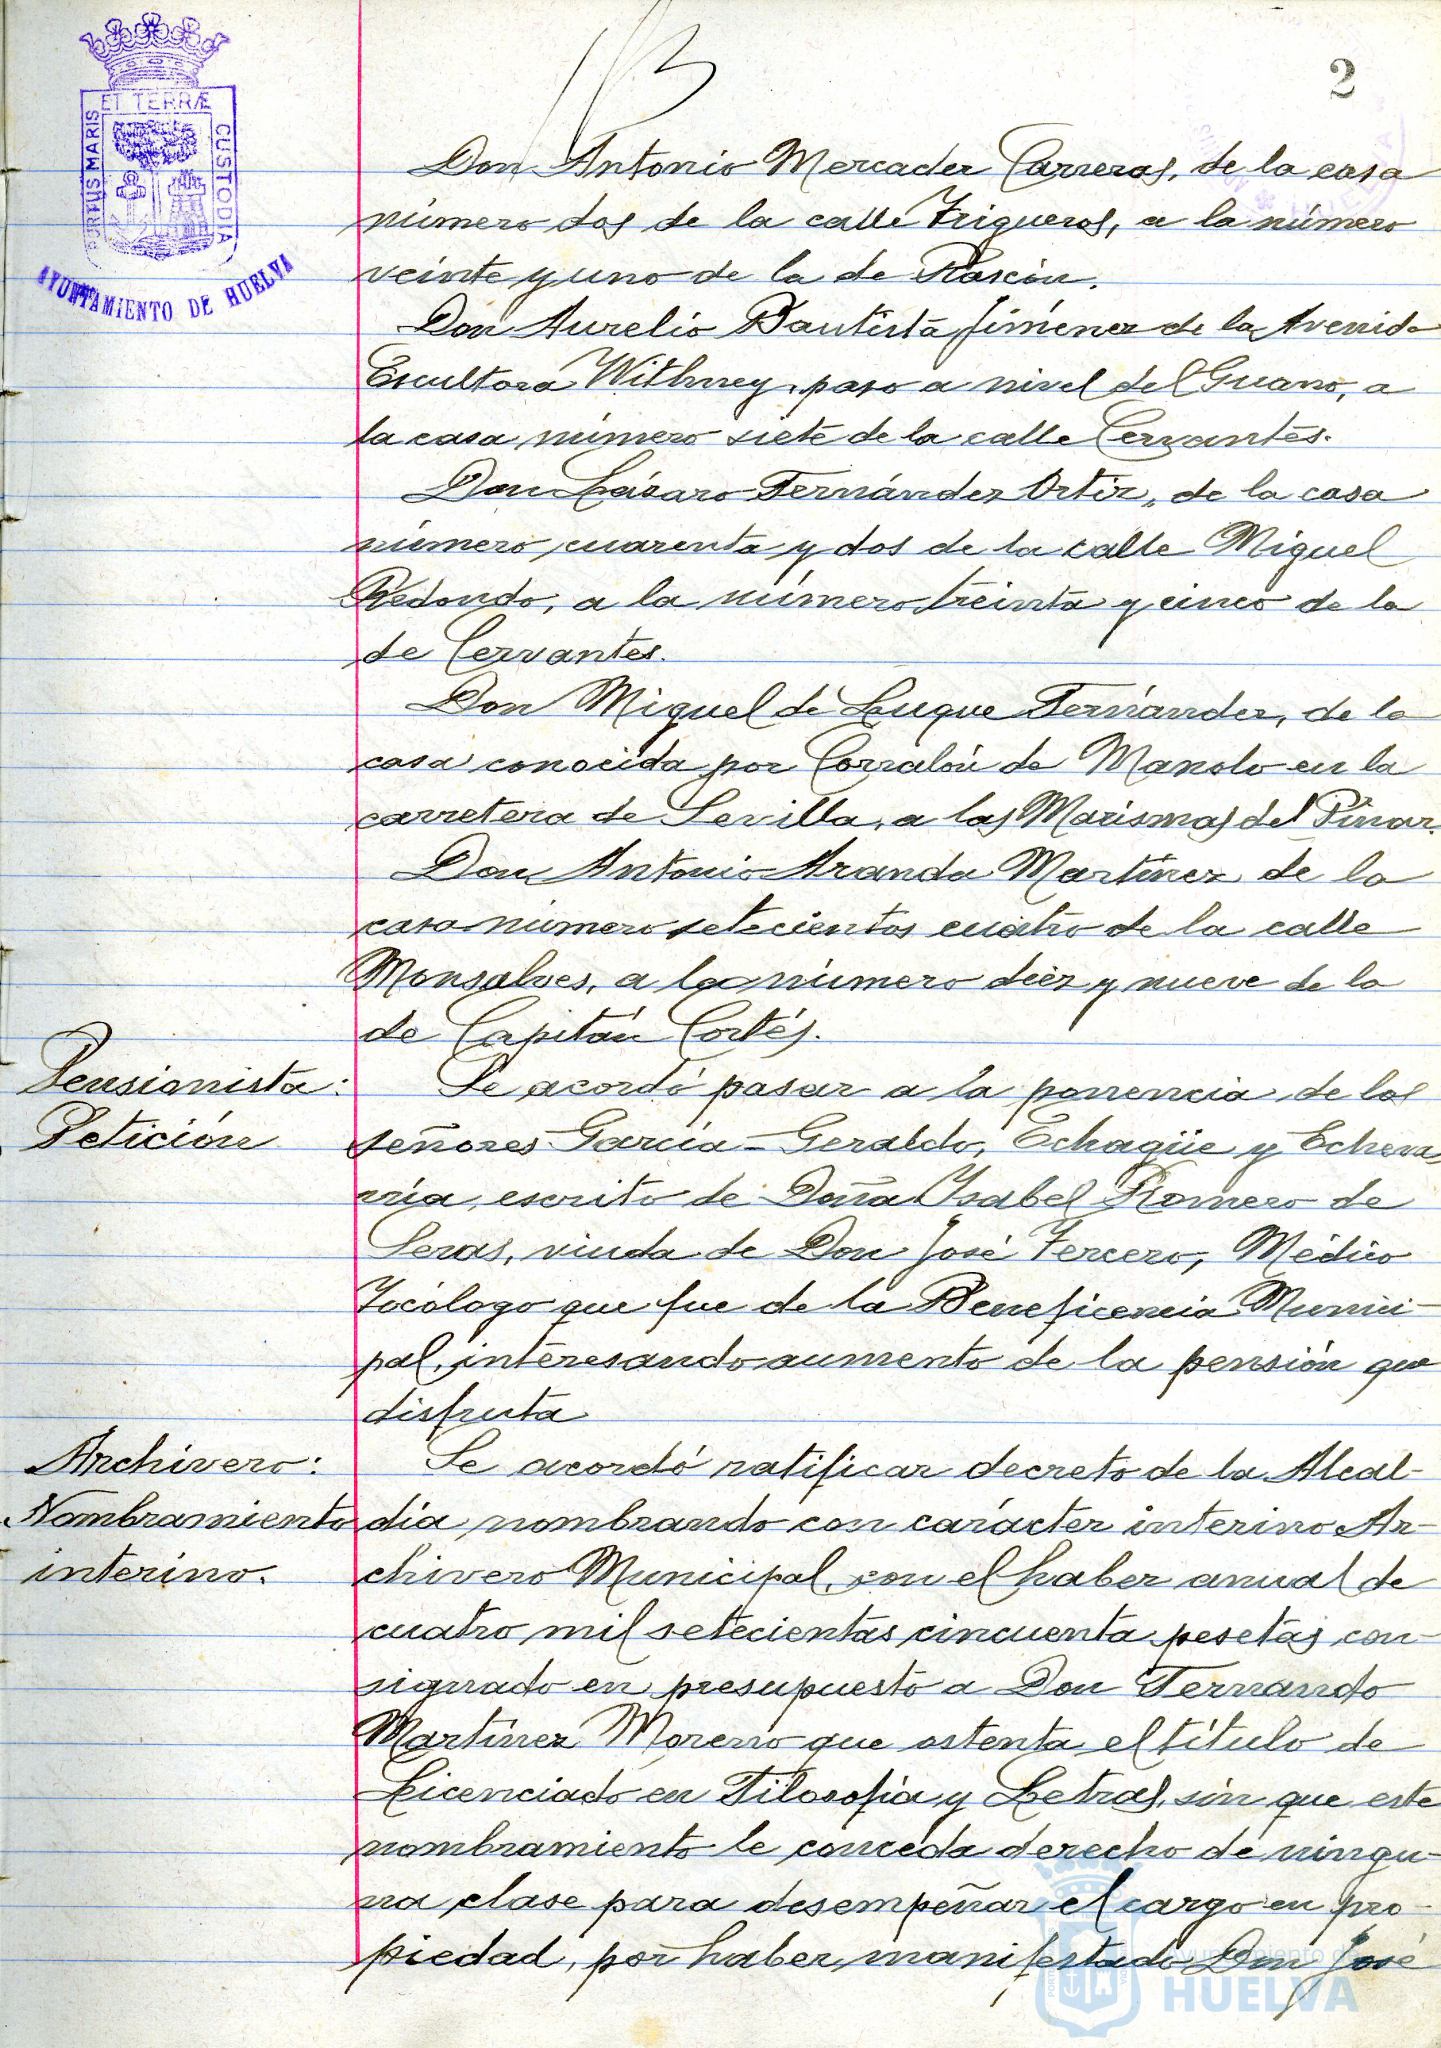 2
PORTUS MARIS ET TERRÆ CUSTODIA
AYUNTAMIENTO DE HUELVA
Don Antonio Mercader Carreras, de la casa
número dos de la calle Trigueros, a la número
veinte y uno de la de Rascón.
Don Aurelio Bautista Jiménez de la Avenida
Escultora Withney, paso a nivel del Guano, a
la casa número siete de la calle Cervantes.
Don Lázaro Fernández Ortiz, de la casa
número cuarenta y dos de la calle Miguel
Redondo, a la número treinta y cinco de la
de Cervantes.
Don Miguel de Luque Fernández, de la
casa conocida por Corralón de Manolo en la
carretera de Sevilla, a las Marismas del Pinar.
Don Antonio Aranda Martínez de la
casa número setecientos cuatro de la calle
Monsalves, a la número diez y nueve de la
de Capitán Cortés.
Pensionista:
Petición
Se acordó pasar a la ponencia de los
señores García-Geraldo, Echagüe y Echeva
rría, escrito de Doña Ysabel Romero de
Seras, viuda de Don José Tercero, Médico
Tocólogo que fue de la Beneficencia Munici-
pal, interesando aumento de la pensión que
disfruta
Archivero:
Nombramiento
interino.
Se acordó ratificar decreto de la Alcal-
día nombrando con carácter interino Ar-
chivero Municipal, con el haber anual de
cuatro mil setecientas cincuenta pesetas con-
signado en presupuesto a Don Fernando
Martínez Moreno que ostenta el título de
Licenciado en Filosofía y Letras, sin que este
nombramiento le conceda derecho de ningu-
na clase para desempeñar el cargo en pro-
piedad, por haber manifestado Don José
Ayuntamiento de
HUELVA